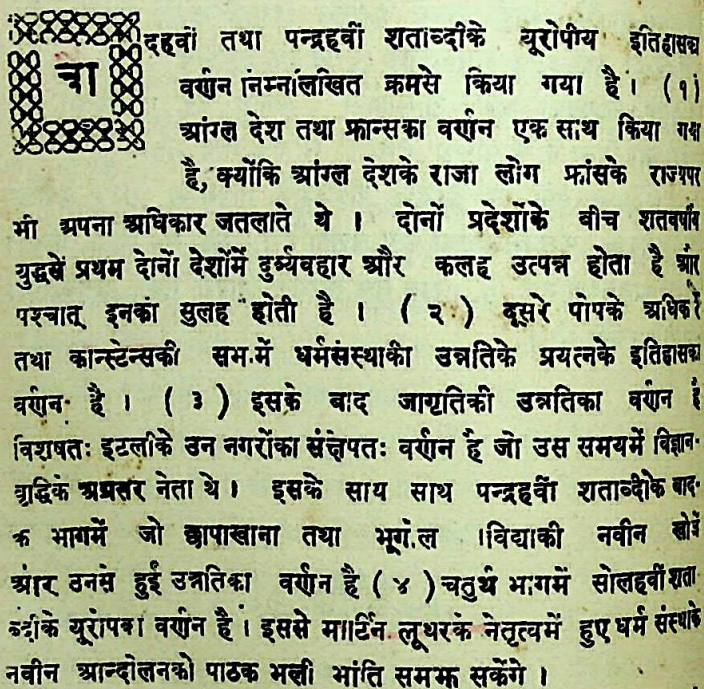 चादहवीं तथा पन्द्रहवीं शताब्दीके यूरोपीय इतिहासका
वर्णन निम्नलिखित क्रमसे किया गया है। (१)
आंग्ल देश तथा फ्रान्सका वर्णन एक साथ किया गया
है, क्योंकि आंग्ल देशके राजा लोग फ्रांसके राज्यपर
भी अपना अधिकार जतलाते थे । दोनों प्रदेशोंके बीच शतवर्षीय
युद्धसे प्रथम दोनों देशोंमें दुर्व्यवहार और कलह उत्पन्न होता है और
पश्चात् इनकी सुलह होती है । ( २ ) दूसरे पोपके अधिकार
तथा कान्स्टेन्सकी सभामें धर्मसंस्थाकी उन्नतिके प्रयत्नके इतिहासका
वर्णन है । ( ३ ) इसके बाद जागृतिकी उन्नतिका वर्णन है
विशेषतः इटलीके उन नगरोंका संक्षेपतः वर्णन है जो उस समयमें विज्ञान-
वृद्धिके अग्रसर नेता थे । इसके साथ साथ पन्द्रहवीं शताब्दीके बाद-
के भागमें जो छापाखाना तथा भूगोल विद्याकी नवीन खोजें
और उनसे हुई उन्नतिका वर्णन है ( ४ ) चतुर्थ भागमें सोलहवीं शता-
ब्दीके यूरोपका वर्णन है । इससे मार्टिन लूथरके नेतृत्वमें हुए धर्म संस्थाके
नवीन आन्दोलनको पाठक भली भांति समझ सकेंगे ।